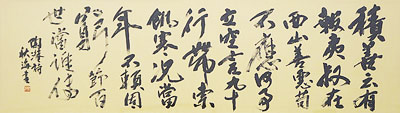 積善云有
報夷叔在
西山善惡苟
不應何事
立空言九十
行帶索
飢寒況當
年不賴固
窮節百
世當誰傳
陶潛詩